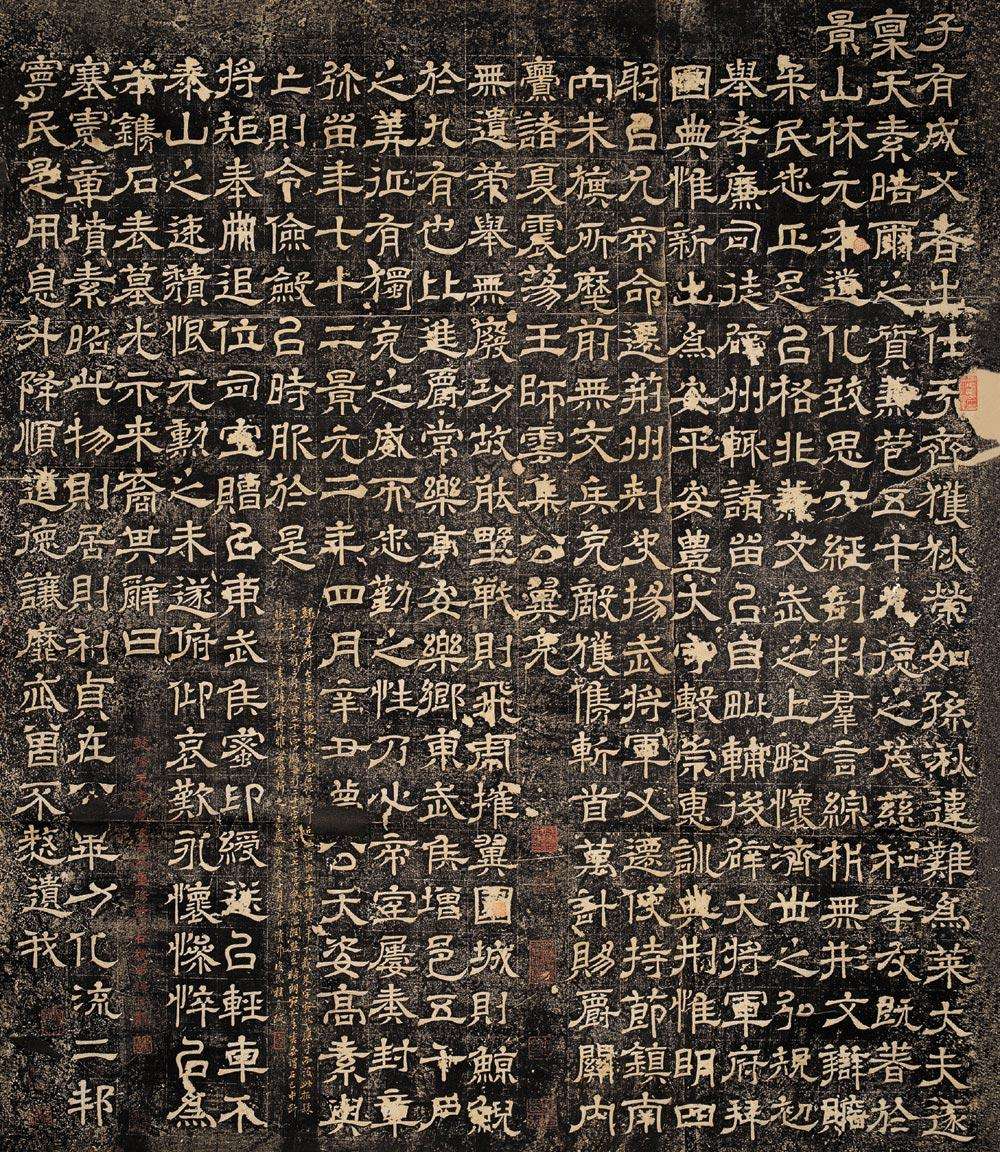 子有成父者出仕于齊獲狄榮如孫湫違難為萊大夫遂
稟天素皓爾之質兼苞五才九德之茂慈和孝友既著於
景山林元本道化致思六經剖判羣言綜析無形文辯贍
柔民忠正足以格非兼文武之上略懷濟世之弘規初
舉孝廉司徒辟州輒請留以自毗輔後辟大將軍府拜
國典惟新出為安平安豐大守敷崇惠訓典制惟明四
躬以允帝命遷荊州刾史揚武將軍又遷使持節鎮南
內朱旗所麾前無交兵克敵獲儁斬首萬計賜爵關內
釁諸夏震蕩王師雲集公翼亮
無遺策舉無廢功故能野戰則飛虎摧翼圍城則鯨鯢
於九有也比進爵常樂亭安樂鄉東武侯增邑五千戶
之美征有獨克之威而忠勤之性乃心帝室屢奏封章
弥留年七十二景元二年四月辛丑薨公天姿高素與
亡則令儉斂以時服於是
將矩奉冊追位司空贈以東武侯蜜印綬送以輕車介
泰山之速頹恨元勳之未遂俯仰哀歎永懷慘悴以為
鐫石表墓光示來裔其辭曰
塞憲章墳素昭此物則居則利貞在公畢力化流二邦
寧民是用息升降順道德讓靡忒曾不慭遺我